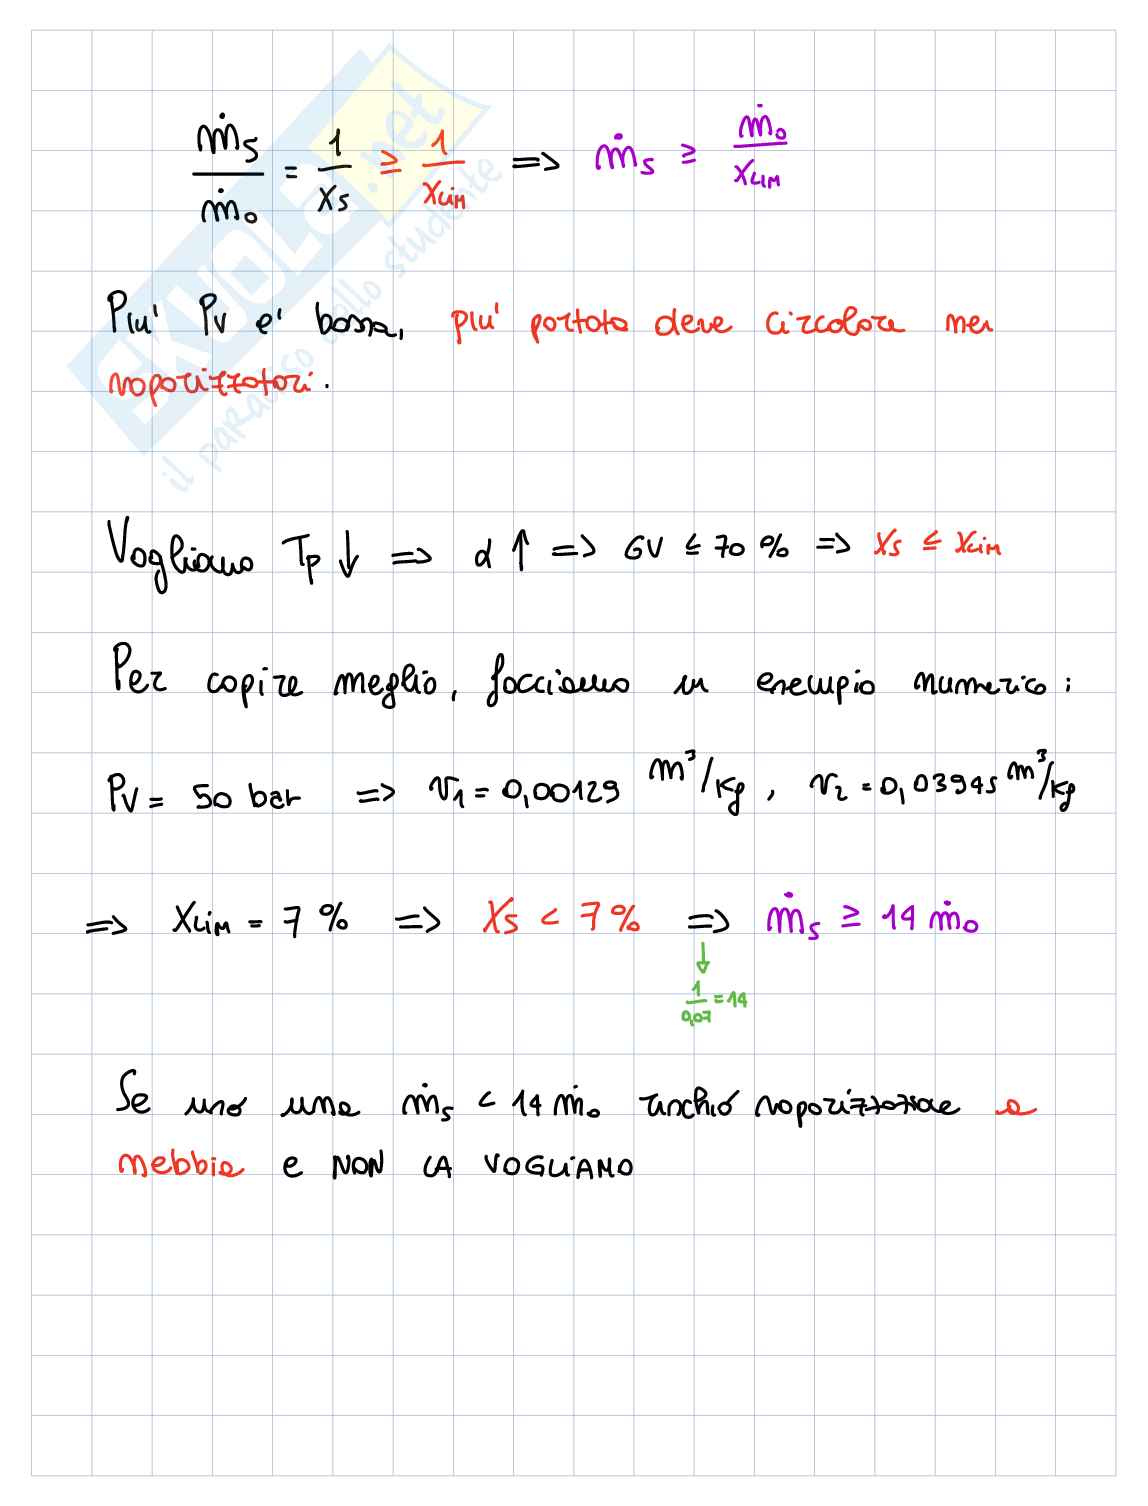 ṁs/ṁo = 1/xs ≥ 1/xLIM => ṁs ≥ ṁo/xLIM
Più Pv è bassa, più portata deve circolare nei
vaporizzatori.
Vogliamo Tp ↓ => α ↑ => GV ≤ 70 % => xs ≤ xLIM
Per capire meglio, facciamo un esempio numerico :
Pv = 50 bar => v1 = 0,00129 m³/kg , v2 = 0,03945 m³/kg
=> xLIM = 7 % => xs < 7 % => ṁs ≥ 14 ṁo
↓
1/0,07 = 14
Se uso una ṁs < 14 ṁo rischio vaporizzazione a
nebbia e NON LA VOGLIAMO
SKUOLA.net
il paradiso dello studente